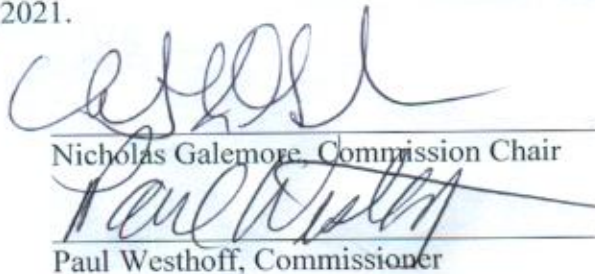 2021.
Nicholas Galemore, Commission Chair
Paul Westhoff
Paul Westhoff, Commissioner